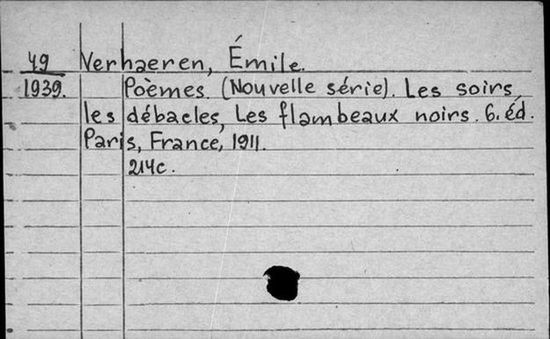 49 Verhaeren, Émile.
1939. Poèmes. (Nouvelle série). Les soirs,
les débacles, Les flambeaux noirs. 6. éd.
Paris, France, 1911.
214c.